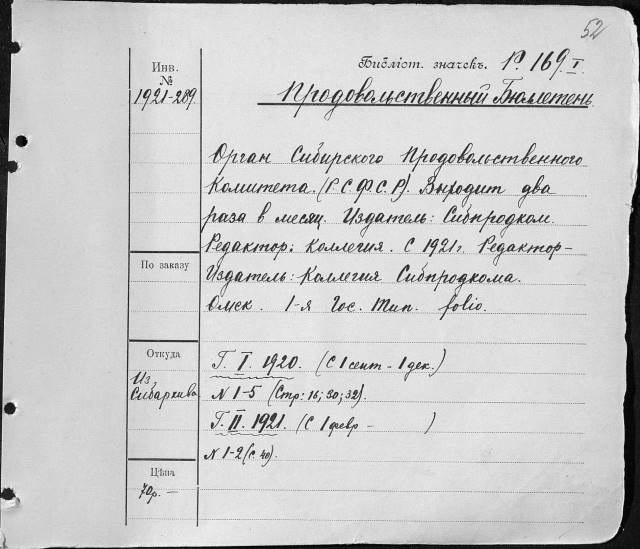 52
Инв.
№
1921-289.
Библіот. значекъ. Р. 169. I.
Продовольственный Бюллетень
Орган Сибирского Продовольственного
Комитета. (Р С Ф С Р). Выходит два
раза в месяц. Издатель: Сибпродком.
Редактор: Коллегия. С 1921 г. Редактор-
По заказу
Издатель: Коллегия Сибпродкома.
Омск. 1-я Гос. Тип. folio.
Откуда
Из
Сибархива
Г. I. 1920. (С 1 сент - 1 дек.)
N 1-5 (Стр: 16; 30; 32).
Г. II. 1921. (С 1 февр - )
N 1-2 (С. 40).
Цѣна
70р. —